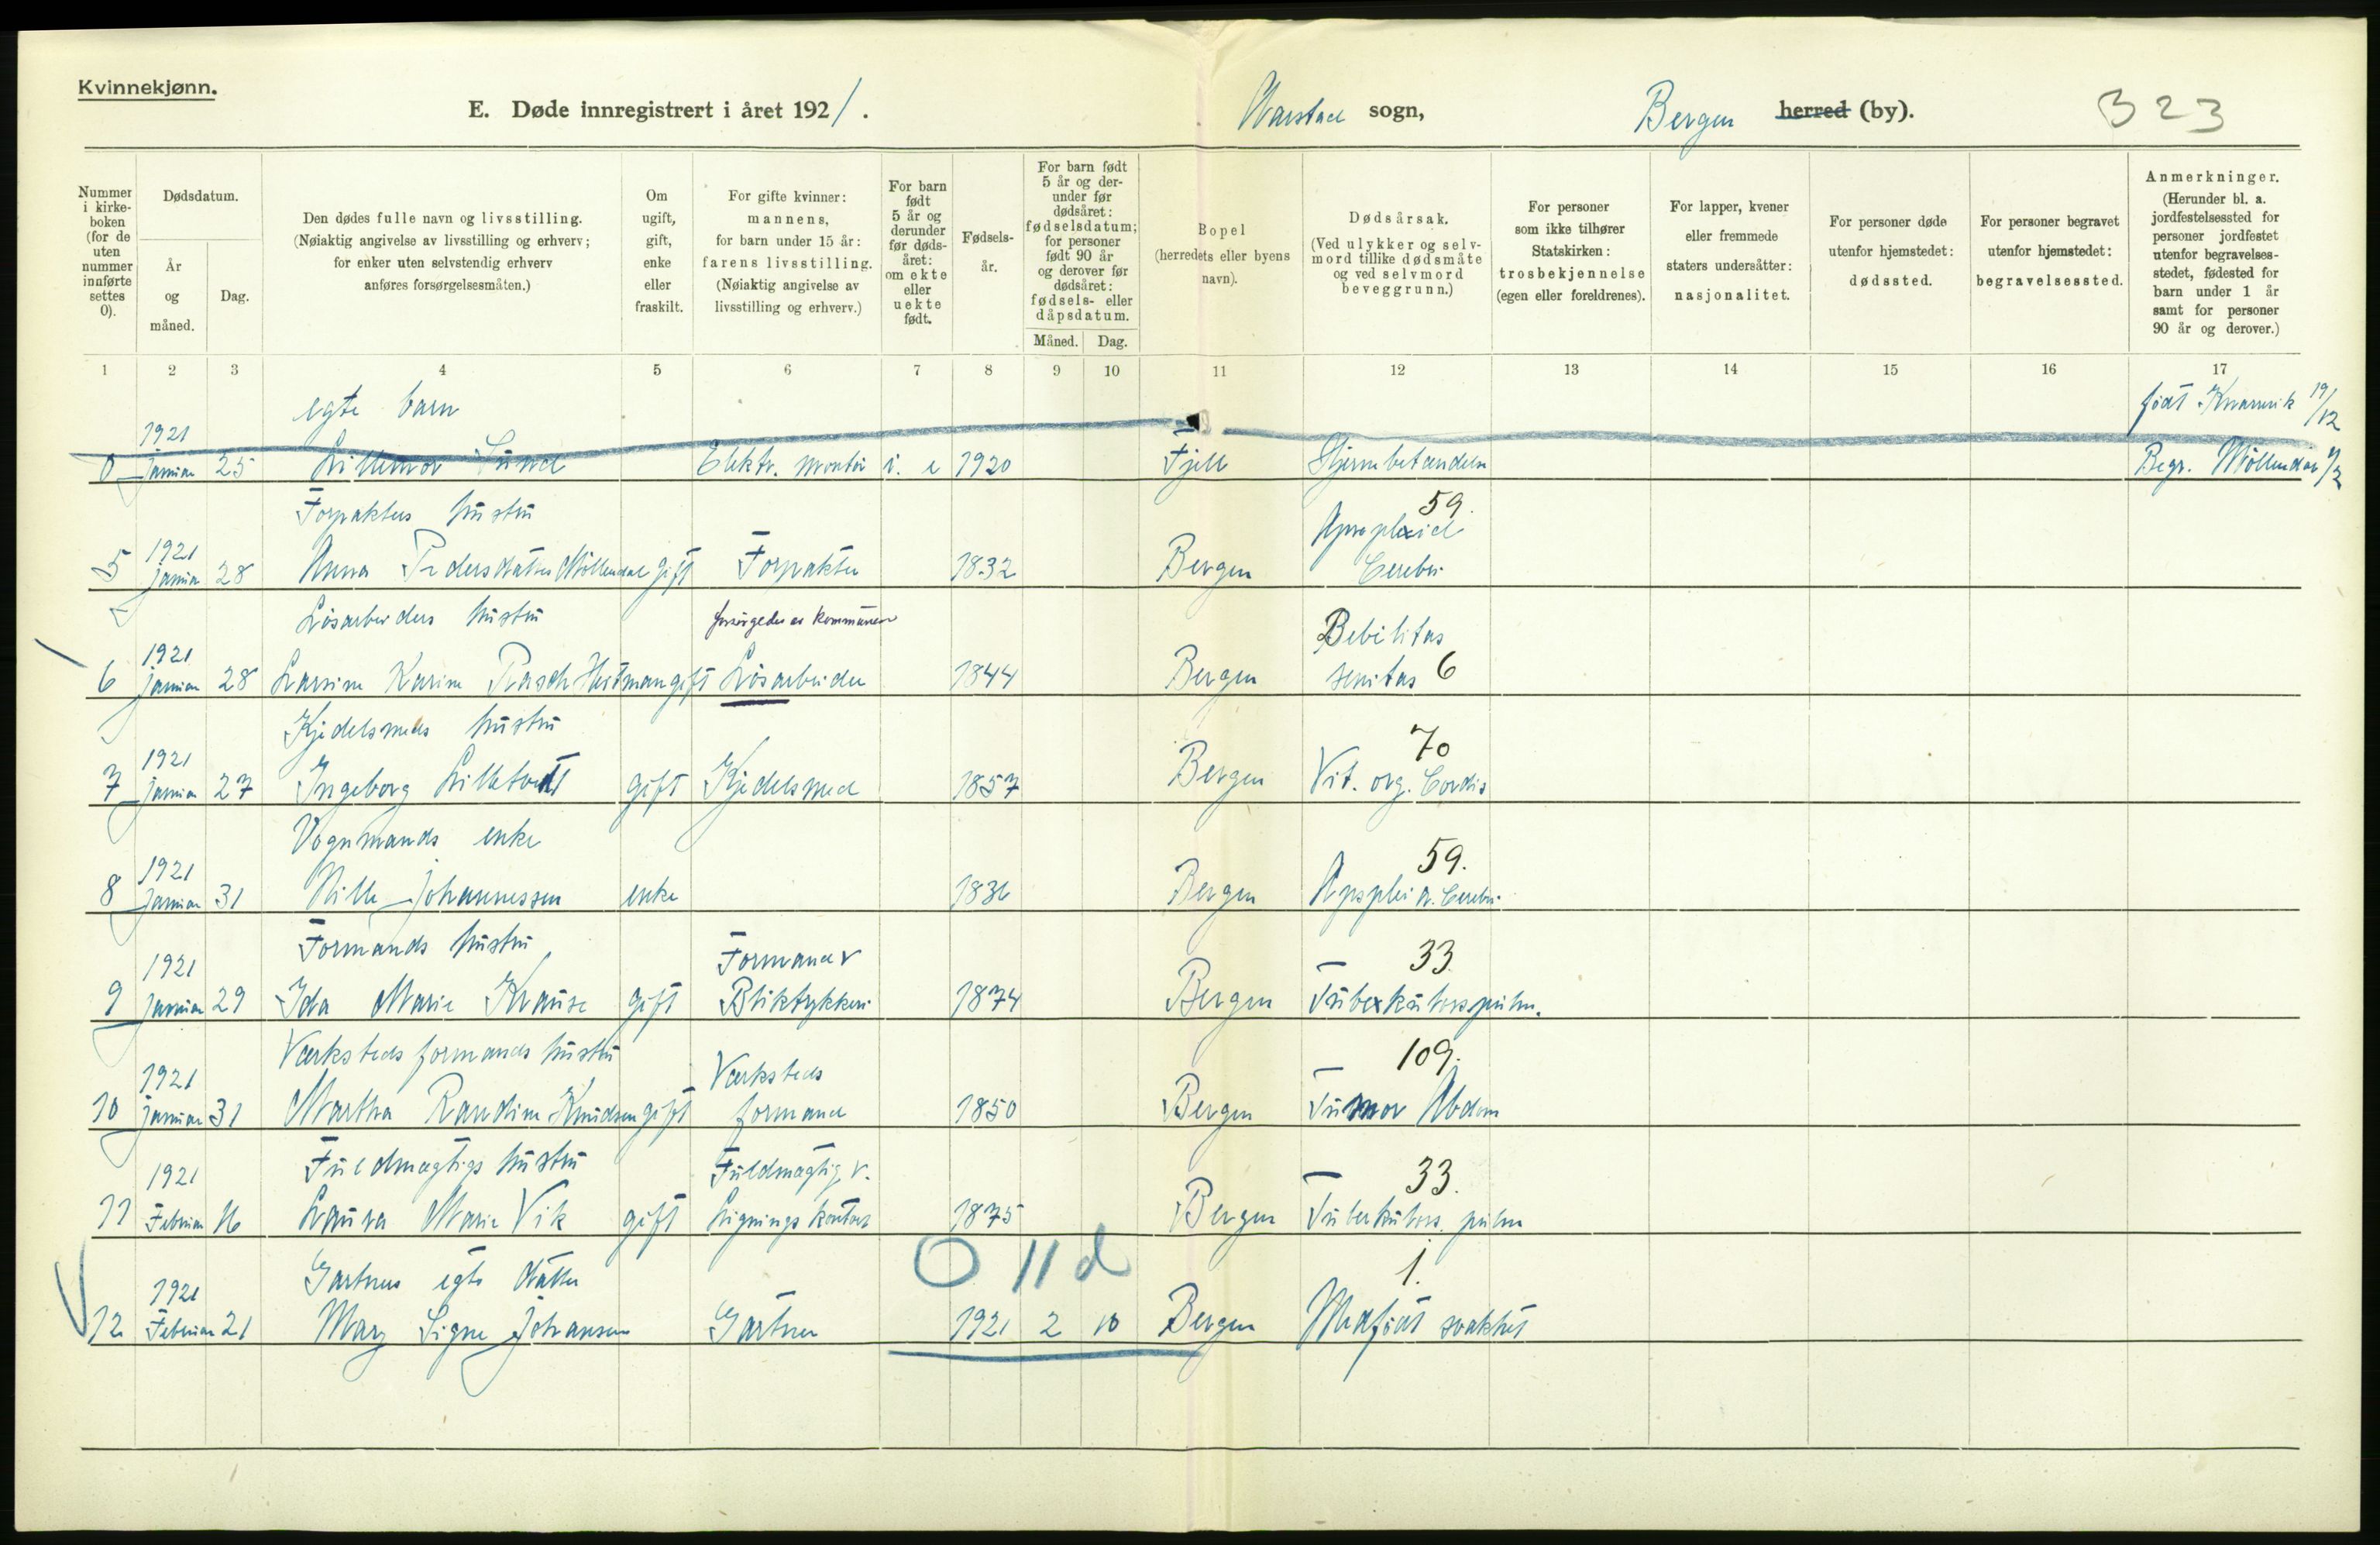 Kvinnekjønn.
E. Døde innregistrert i året 1921.
Aarstad sogn,
Bergen herred (by).
323
Nummer i kirkeboken (for de uten nummer innførte settes 0).
Dødsdatum.
År og måned.
Dag.
Den dødes fulle navn og livsstilling.
(Nøiaktig angivelse av livsstilling og erhverv; for enker uten selvstendig erhverv anføres forsørgelsesmåten.)
Om ugift, gift, enke eller fraskilt.
For gifte kvinner: mannens, for barn under 15 år: farens livsstilling.
(Nøiaktig angivelse av livsstilling og erhverv.)
For barn født 5 år og derunder før dødsåret: om ekte eller uekte født.
Fødselsår.
For barn født 5 år og derunder før dødsåret: fødselsdatum; for personer født 90 år og derover før dødsåret: fødsels- eller dåpsdatum.
Måned. Dag.
Bopel (herredets eller byens navn).
Dødsårsak.
(Ved ulykker og selvmord tillike dødsmåte og ved selvmord beveggrunn.)
For personer som ikke tilhører Statskirken: trosbekjennelse (egen eller foreldrenes).
For lapper, kvener eller fremmede staters undersåtter: nasjonalitet.
For personer døde utenfor hjemstedet: dødssted.
For personer begravet utenfor hjemstedet: begravelsessted.
Anmerkninger.
(Herunder bl. a. jordfestelsessted for personer jordfestet utenfor begravelsesstedet, fødested for barn under 1 år samt for personer 90 år og derover.)
1 2 3 4 5 6 7 8 9 10 11 12 13 14 15 16 17
egte barn født 19/12
1921
0 januar 25 Lillemor Sund Elektr. montør i. e 1920 Fjell Hjernebetændelse Begr. Möllendal
Forpakters hustru 59.
1921 Apoplexid
5 januar 28 Anna Pedersdatter Möllendal gift Forpakter 1832 Bergen Cerebri
Løsarbeiders hustru forsørgedes av kommunen Debilitas
1921
6 januar 28 Larsine Karine Rasch gift Løsarbeider 1844 Bergen senitas 6
Kjedelsmeds hustru 70
1921
7 januar 27 Ingeborg Lilletvedt gift Kjedelsmed 1857 Bergen Vit. org. Cordis
Vognmands enke 59.
1921
8 januar 31 Nille Johannessen enke 1836 Bergen Apoplexi a. Cerebri
Formands hustru Formand v 33.
1921
9 januar 29 Ida Marie Krause gift Bliktrykkeri 1874 Bergen Tuberkulose pulm.
Værkstedsformands hustru Værksteds 109.
1921
10 januar 31 Martha Randine Knudsen gift formand 1850 Bergen Tumor Abdom
Fuldmægtigs hustru Fuldmægtig v. 33.
1921
11 Februar 16 Laura Marie Vik gift Ligningskontor 1875 Bergen Tuberkulos. pulm
0 11 d
Gartners egte datter 1.
1921
12 Februar 21 Mary Signe Johansen Gartner 1921 2 10 Bergen Medfødt svakhet